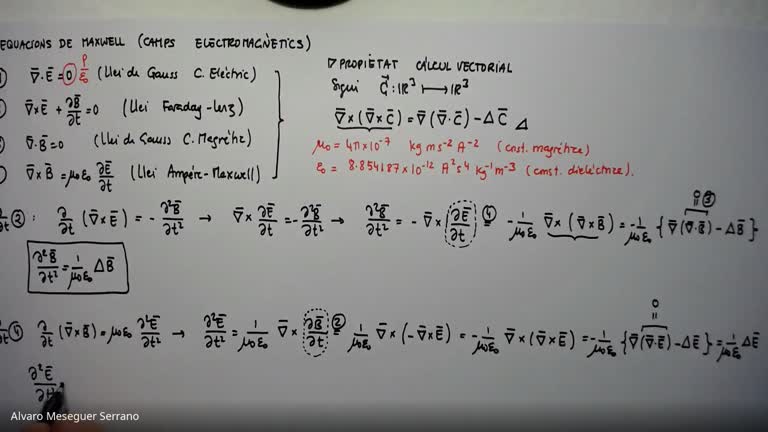 EQUACIONS DE MAXWELL (CAMPS ELECTROMAGNÈTICS)
∇̄·Ē = 0 ρ/ε₀ (Llei de Gauss C. Elèctric)
∇̄×Ē + ∂B̄/∂t = 0 (Llei Faraday-Lenz)
∇̄·B̄ = 0 (Llei de Gauss C. Magnètic)
∇̄×B̄ = μ₀ε₀ ∂Ē/∂t (Llei Ampère-Maxwell)
▷ PROPIETAT CÀLCUL VECTORIAL
Sigui C⃗: ℝ³ ⟼ ℝ³
∇̄×(∇̄×C̄) = ∇̄(∇̄·C̄) - ΔC̄ △
μ₀ = 4π×10⁻⁷ kg m s⁻² A⁻² (const. magnètica)
ε₀ = 8.854187×10⁻¹² A² s⁴ kg⁻¹ m⁻³ (const. dielèctrica).
②: ∂/∂t (∇̄×Ē) = - ∂²B̄/∂t² → ∇̄×∂Ē/∂t = - ∂²B̄/∂t² → ∂²B̄/∂t² = - ∇̄×(∂Ē/∂t) =④ -1/μ₀ε₀ ∇̄×(∇̄×B̄) = -1/μ₀ε₀ {∇̄(∇̄·B̄) - ΔB̄} 0 = ③
∂²B̄/∂t² = 1/μ₀ε₀ ΔB̄
④ ∂/∂t (∇̄×B̄) = μ₀ε₀ ∂²Ē/∂t² → ∂²Ē/∂t² = 1/μ₀ε₀ ∇̄×∂B̄/∂t =② 1/μ₀ε₀ ∇̄×(-∇̄×Ē) = -1/μ₀ε₀ ∇̄×(∇̄×Ē) = -1/μ₀ε₀ {∇̄(∇̄·Ē) - ΔĒ} = 1/μ₀ε₀ ΔĒ 0 =
∂²Ē
Alvaro Meseguer Serrano